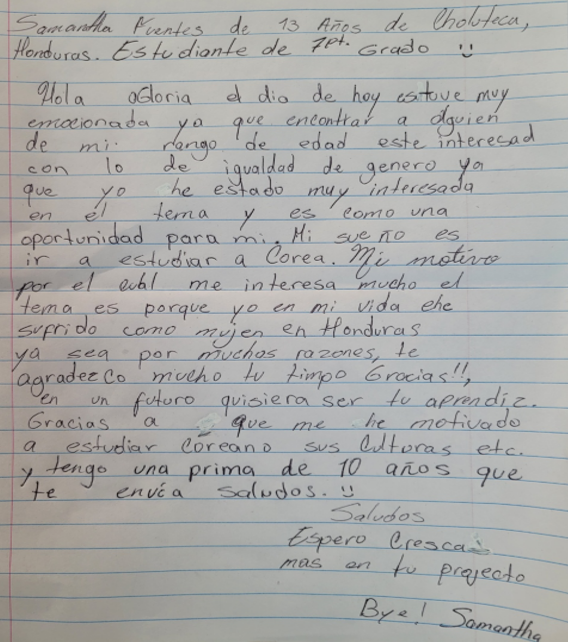 Samantha Fuentes de 13 Años de Choluteca,
Honduras. Estudiante de 7pt. Grado
Hola Gloria el dia de hoy estuve muy
emocionada ya que encontrar a alguien
de mi rango de edad este interesad
con lo de igualdad de genero ya
que yo he estado muy interesada
en el tema y es como una
oportunidad para mi. Mi sueño es
ir a estudiar a Corea. Mi motivo
por el cual me interesa mucho el
tema es porque yo en mi vida ehe
sufrido como mujen en Honduras
ya sea por muchas razones, te
agradezco mucho tu timpo Gracias!!,
en un futuro quisiera ser tu aprendiz.
Gracias a que me he motivado
a estudiar Coreano sus Culturas etc.
y tengo una prima de 10 años que
te envía saludos.
Saludos
Espero Cresca
mas en tu projecto
Bye! Samantha